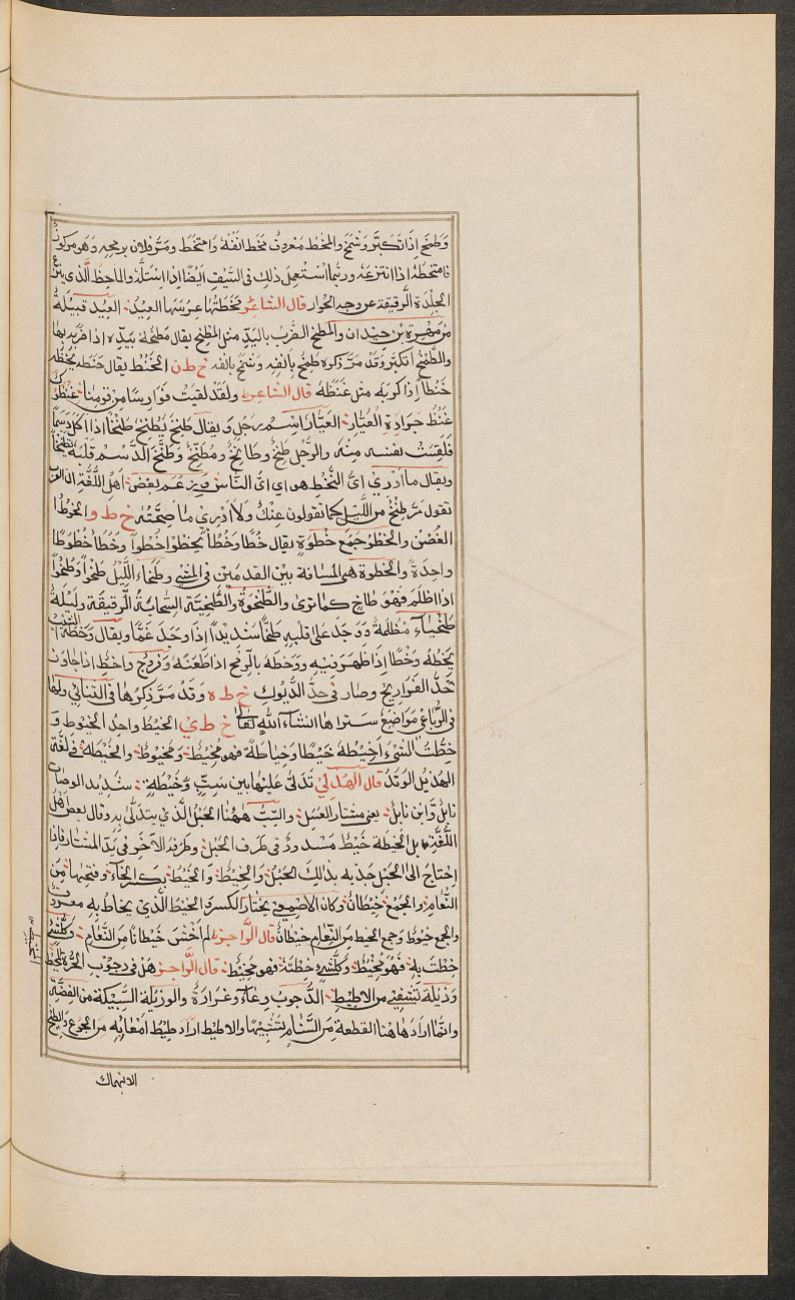 وَطنَخ اِذا تَكبَّر وَشَمَخَ والمَخْط مَعْروف مَخَط انفَهُ وَامتَخَطَ ومَرَّ فلان برمحِهِ وَهو مركوز
فامتخطهُ اذا انتزعَهُ وربّما اسْتُعمِلَ ذلِك فى السَّيفِ اَيضًا اذا استلَّهُ والماخِطُ الَّذي ينزع
الجِلْدَة الرَقيقَةَ عن وجهِ الحُوار قال الشاعر مُخَطَتُها غِرسَها العِيْدُ العِيْد قبيلَةٌ
مِن مَهْرة بن حَيْدان والمَطخُ الضَّرب باليَدِ مثل المَطخِ يقال مَطخَهُ بيَدِه اذا ضَرَبه بها
والطَّمْخُ التكبّر وَقد مَرَّ ذكره طَمَخ بِاَنفِهِ وَشمخ بانفه خ ط ن الخَنْط يقال خَنَطه يخنطه
خَنْطاً اِذا كرَبَه مثل غَنَظَهُ قال الشاعر ولقَدْ لقيتَ فوارِسًا مِن قومِنا غنظوك
غَنْظَ جَرادةِ العَيَّارِ العَيَّار اسْم رَجُلٍ وَيقال طَنِخَ يَطْنَخُ طَنَخًا اذا اكل دَسِمًا
فلَقِسَتْ نفسُه مِنْهُ والرَّجُل طَنِخٌ وطانِخٌ ومُطنَّخٌ وَطَنَّخَ الدَّسْم قلبَهُ تطنيخًا
ويقال ما اَدْرِي اىُّ الطَّنْخِ هو اي اىُّ النّاس وَيزعم بعض اَهْلِ اللُّغة ان العرب
تقول مَرَّ طِنْخٌ مِن اللَّيل كما تقولون عِنْكٌ وَلا اَدْرِي ما صِحَّتُهُ خ ط و الخُوْطُ
الغُصْن والخَطْوُ جَمع خَطْوةٍ يقال خَطَا وخُطْاً يخطُو اخْطُواً وخُطَاً خُطُوطًا
واحِدَة والخُطوة هى المسافة بين القدمَين فى المشْىِ وطَخَاء اللَّيْل طَخْواً وطُخُوّاً
اذا اظلَم فهوَ طاخٍ كما تَرى والطَّخْوَةُ والطَّخْيَة السَّحابَةُ الرَّقيقَة وليلةٌ
طَخْياءُ مُظلِمَة وَوَجَد عَلى قلبِهِ طَخًا شديدًا اِذا وَجَدَ غَمًّا ويقال وَخَطَهُ الشيْب
يَخِطُهُ وَخْطًا اِذا ظهَرَ فيهِ وَوَخَطَهُ بالرُّمح اذا طَعَنَهُ وفَرُّوج واخِطٌ اذا جاوَزَ
حَدَّ الفَرارِيجِ وصار فى حدِّ الدُّيوك خ ط ه وَقد مَرَّ ذِكرُها فى الثنائي ولها
فى الرُّباعي مَواضِع ستراها اِنشاء اللّٰه تعالى خ ط ي الخَيْطُ واحِدُ الخيُوط وَ
خِطْتُ الشَّىْءَ اَخِيْطُهُ خَيْطًا وخِياطَةً فهو مَخِيْطٌ وَمَخْيوطٌ والخَيْطَةُ فى لغَة
الهذيل الوَتَدُ قال الهذَلي تَدَلّى عَليْها بَين سِبٍّ وخَيْطَةٍ شديد الوصاة
نابِلٌ وَابن نابِلٌ يعنى مشتار العَسَل والسِّبُّ ههُنا الحَبْلُ الَّذي يتدلّى بِه وقال بعض اهل
اللُّغَة بل الخيطة خَيْطٌ مَشدودٌ فى طَرف الحَبل وطَرفهُ الآخَر فى يَدِ المشتار فاِذا
اِحتاجَ الى الحَبل جَذبه بذالِك الحَبْل وَالخَيْط والخِيْط بكسر الخاء وفتحها مِن
النَّعامِ والجَمْع خِيْطان وكان الاصْمعِى يختار الكسر والخيط الَّذي يخاط به معروف
والجمع خيوط وجمع الخيط مِن النّعام خِيْطان قال الرَّاجز لم اَخْشَ خِيْطانًا مِن النَّعامِ وكلّ شىْءٍ
خِطتَ بِه فهُوَ مِخْيَطٌ وكلّ شىء خِطتَهُ فهو مَخِيْطٌ قال الرَّاجز هَل فى دجوبِ الحُرَّةِ المخيط
وَذيلَةٌ تَشفي مِن الاطِيط الدَّجوبُ وِعاءٌ وغَرارَةٌ والوذيلة السَّبيكة من الفضَّة
وانَّما ارادَ هاهُنا القطعَة مِن السَّنامِ يُشبِّهُها والاطِيط اراد اطيط اَمعَائِهِ من الجُوع والطيخ
الانهماك